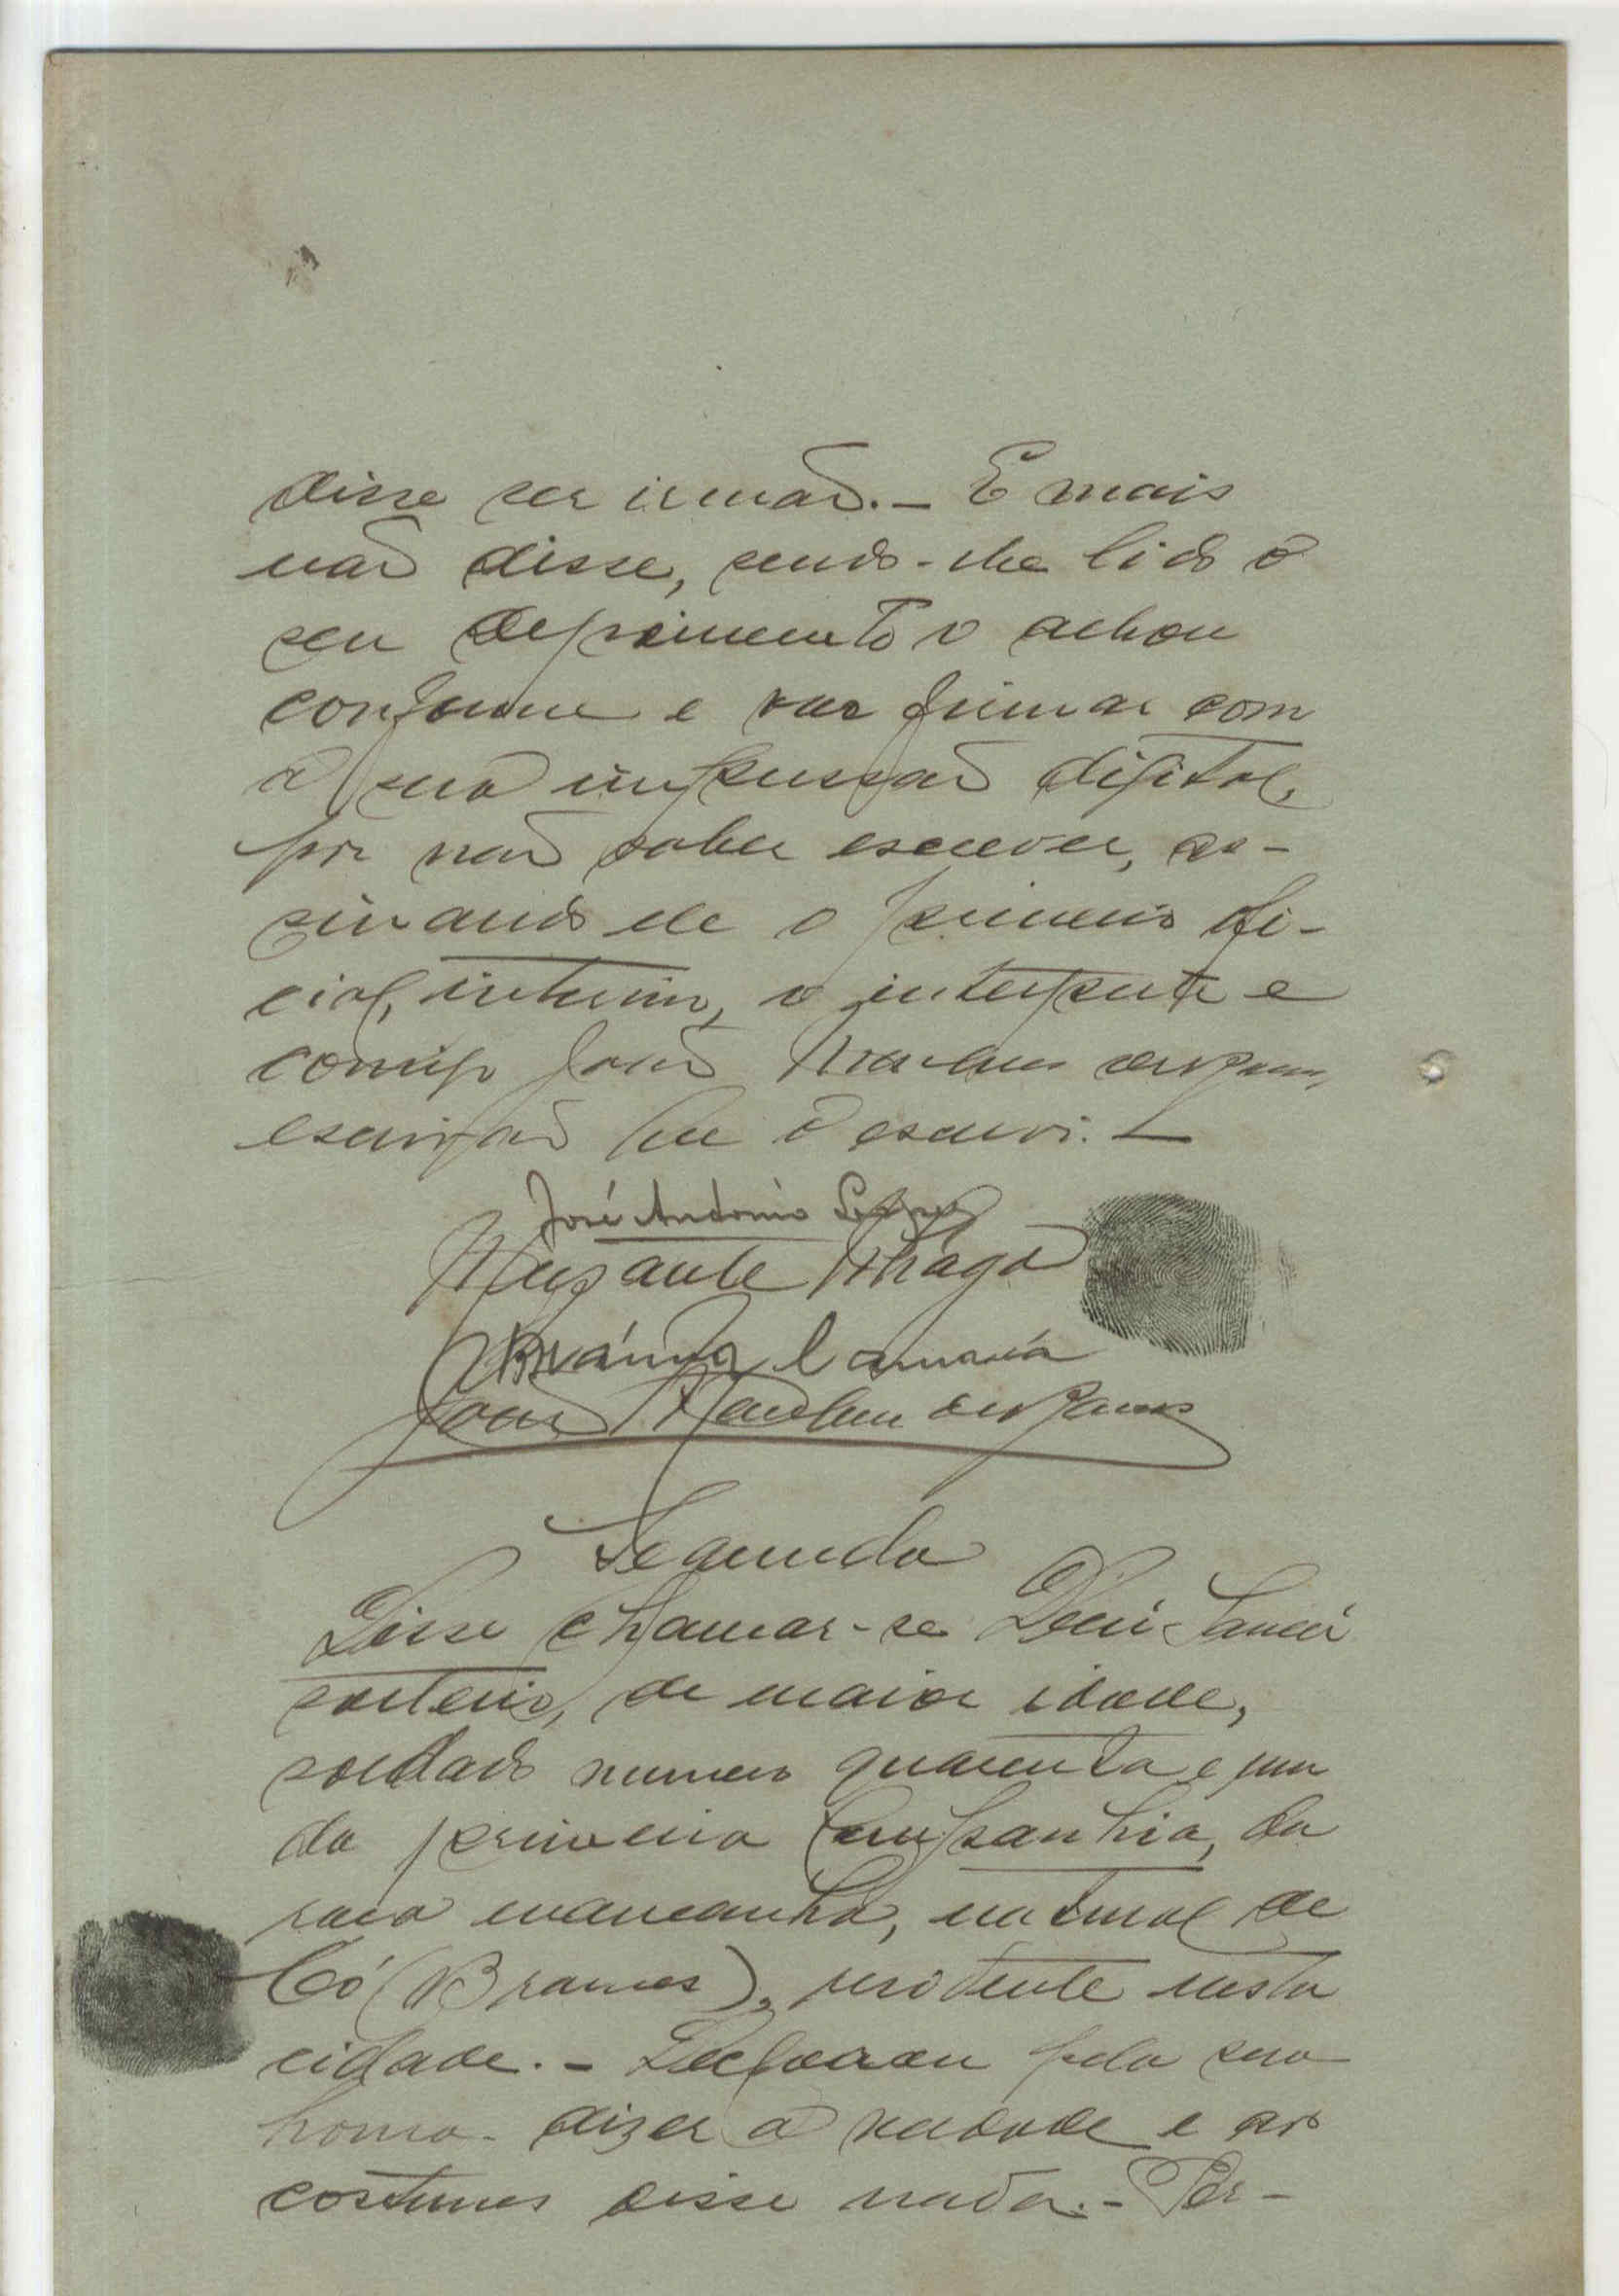 disse ser irmão. — E mais
não disse, sendo-lhe lido o
seu depoimento o achou
conforme e vae firmar com
a sua impressão digital,
por não saber escrever, as-
sinando ele o primeiro ofi-
cial, interino, o interprete e
comigo João
escrivão que o escrevi. —
José Antonio Lopes
João
Segunda
Disse chamar-se
solteiro, de maior idade,
soldado numero quarenta e um
da primeira Companhia, da
raça mancanha, natural de
Có (Brames), residente nesta
cidade. — Declarou pela sua
honra dizer a verdade e aos
costumes disse nada. — Per-